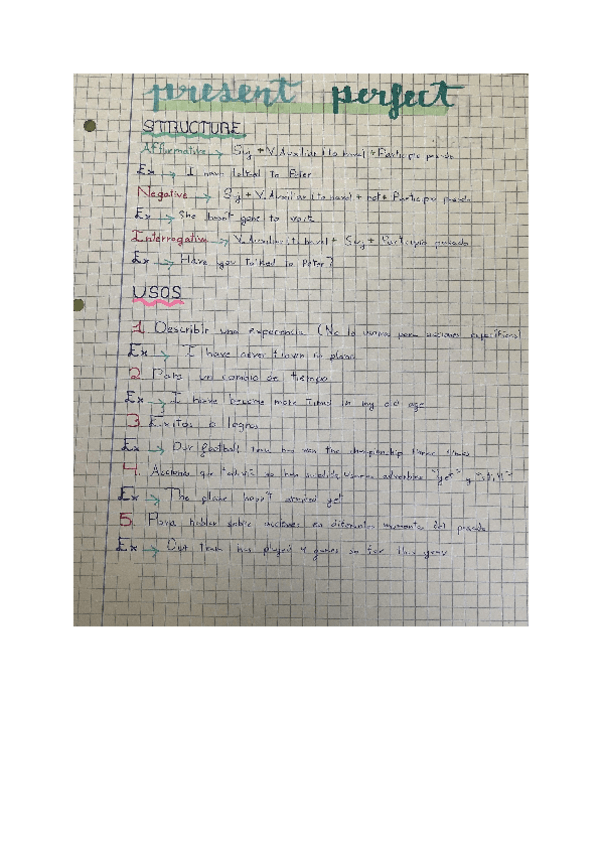 present perfect
STRUCTURE
Affirmative → Suj + V. Auxiliar (to have) + Participio pasado
Ex → I have talked to Peter
Negative → Suj + V. Auxiliar (to have) + not + Participio pasado
Ex → She hasn't gone to
Interrogative → V. Auxiliar (to have) + Suj + Participio pasado
Ex → Have you talked to Peter?
USOS
1. Describir una experiencia (No lo usamos para acciones específicas)
Ex → I have never flown in plane
2. Para un cambio en tiempo
Ex → I have become more in my old age
3. Exitos o logros
Ex → Our football team has won the championship three times
4. Acciones que todavía no han sucedido. Usamos adverbios "yet" y "still"
Ex → The plane hasn't arrived yet
5. Para hablar sobre acciones en diferentes momentos del pasado
Ex → Our team has played 4 games so far this year